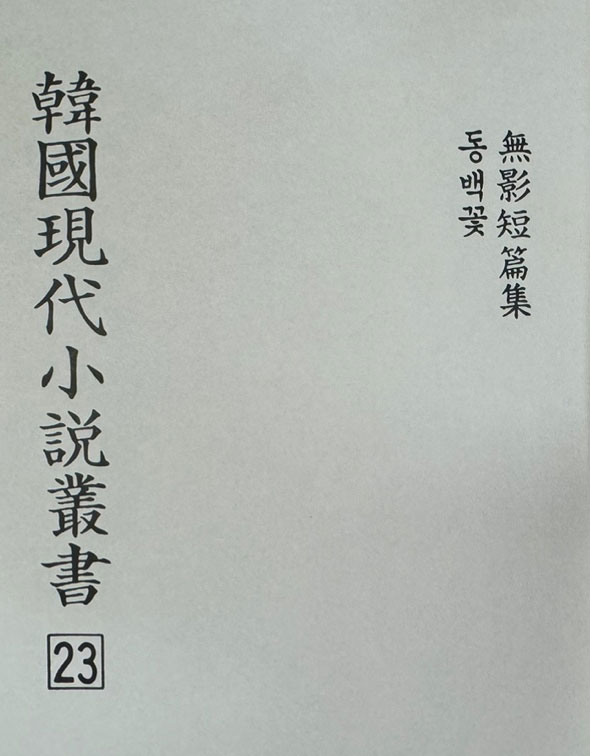 無影短篇集
동백꽃
韓國現代小説叢書
23